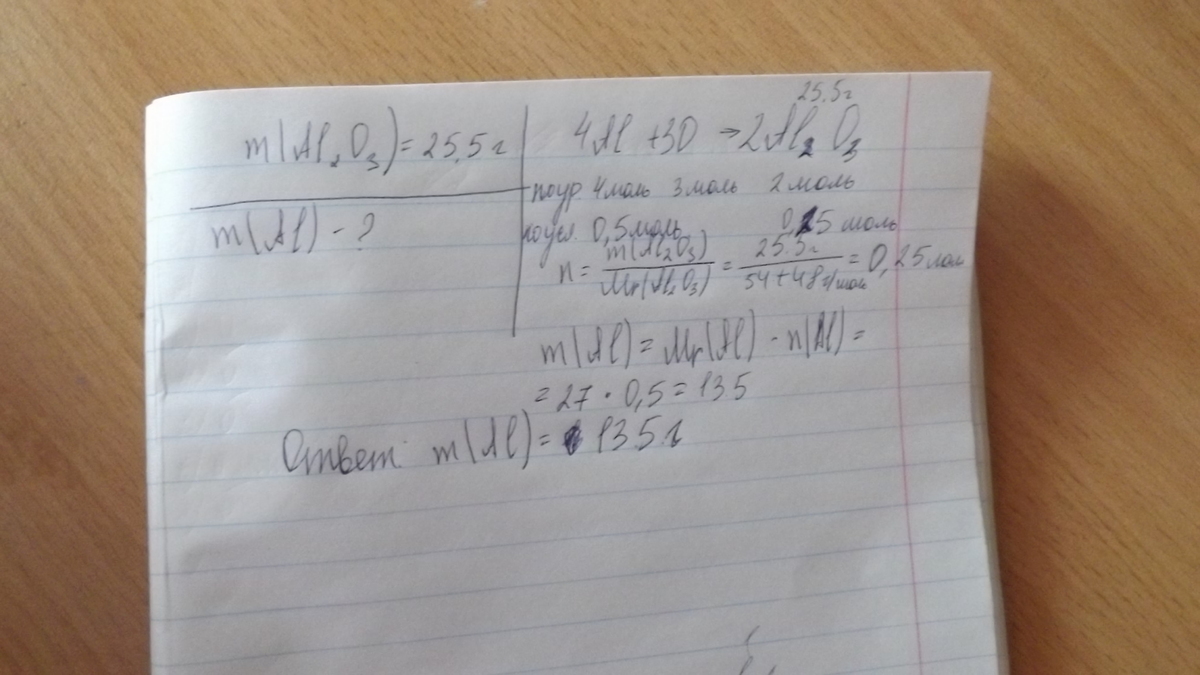 m(Al₂O₃) = 25,5 г
m(Al) - ?
25.5г
4Al + 3O → 2Al₂O₃
по ур. 4 моль 3 моль 2 моль
по усл. 0,5 моль 0,25 моль
n = m(Al₂O₃) / Mr(Al₂O₃) = 25.5г / 54+48 г/мол = 0,25 мол
m(Al) = Mr(Al) · n(Al) =
= 27 · 0,5 = 135
Ответ: m(Al) = 135 г